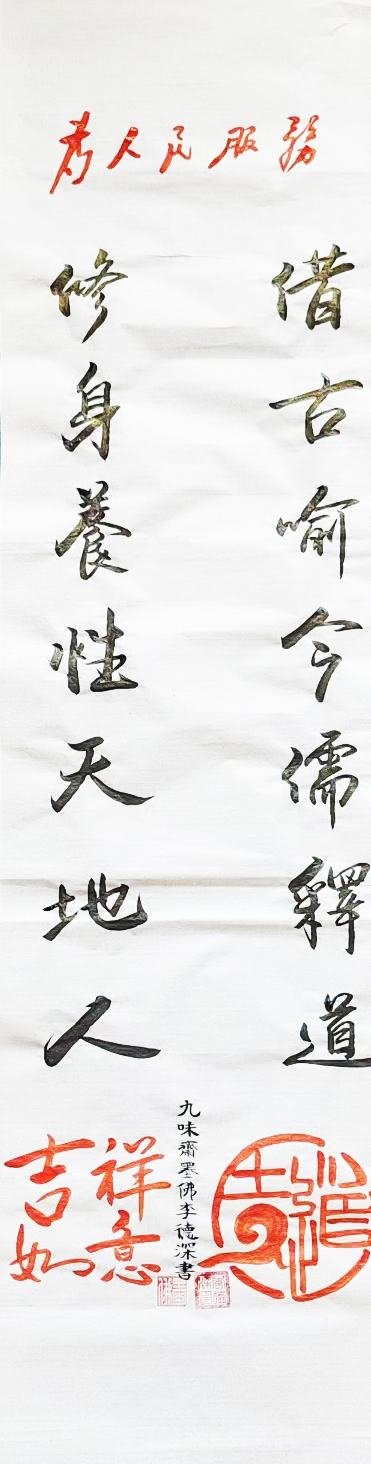 為人民服務
借古喻今儒釋道
修身養性天地人
九味齋墨佛李德深書
吉祥
如意